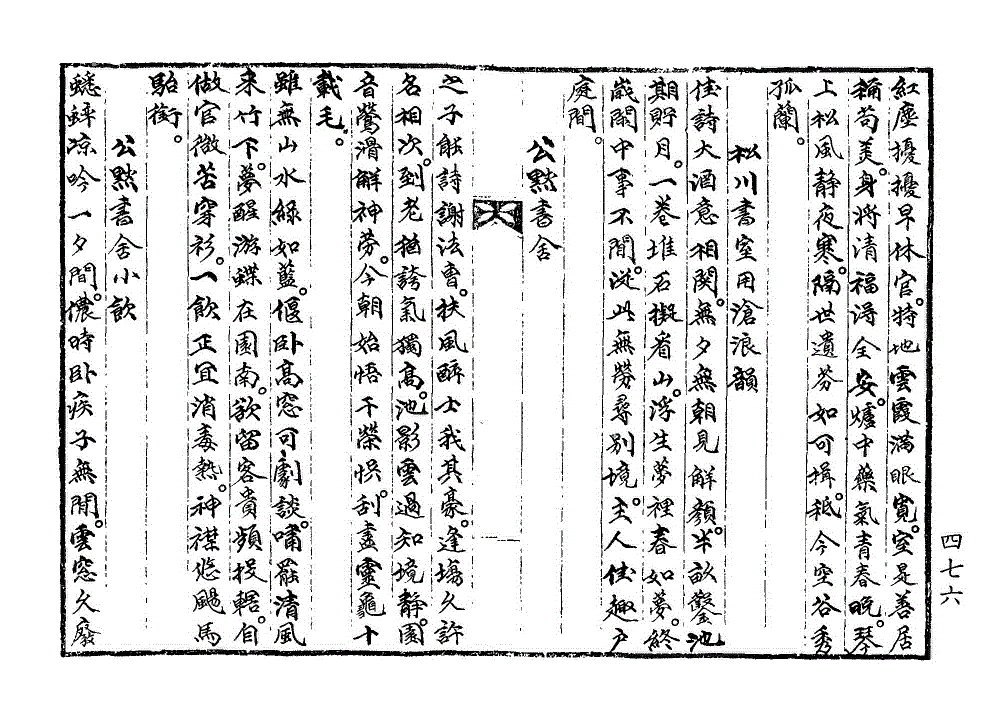 紅塵擾擾早休官。特地雲霞滿眼寬。室是善居
稱苟美。身將清福得全安。爐中藥氣青春晚。琴
上松風靜夜寒。隔世遺芬如可揖。秪今空谷秀
孤蘭。
松川書室用滄浪韻
佳詩大酒意相関。無夕無朝見解顏。半畝鑿池
期貯月。一卷堆石擬看山。浮生夢裡春如夢。終
歲閑中事不閒。泛此無勞尋別境。主人佳趣戶
庭間。
公黙書舍
之子能詩謝法曹。扶風醉士我其豪。逢塲久許
名相次。到老猶誇氣獨高。池影雲過知境靜。園
音鶯滑解神勞。今朝始悟千榮惧。刮盡靈龜十
載毛。
雖無山水綠如藍。偃卧高窓可劇談。嘯罷清風
来竹下。夢醒游蝶在園南。欲留客貴頻投轄。自
做官微苦穿衫。一飲正宜消毒熱。神襟悠颺馬
駘銜。
公黙書舍小飲
蟋蟀凉吟一夕間。儂時卧疾子無閒。雲窓久廢
四七六